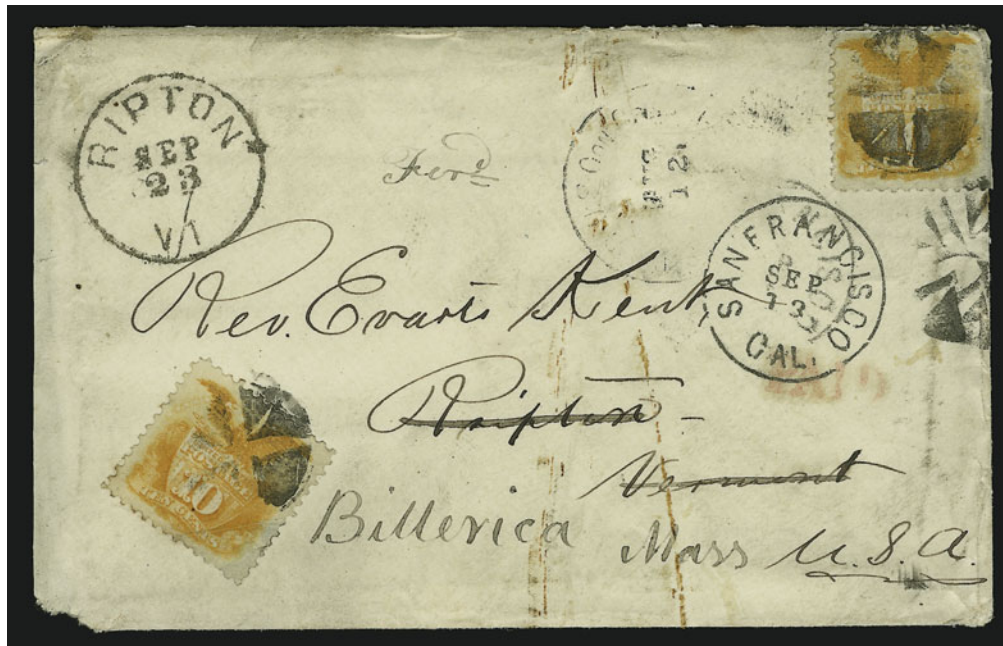 RIPTON
SEP
23
VT
Ford
12
SAN FRANCISCO
SEP
13
CAL.
Rev. Evarts Kent
Ripton
Vermont
10
TEN CENTS
Billerica Mass U.S.A.